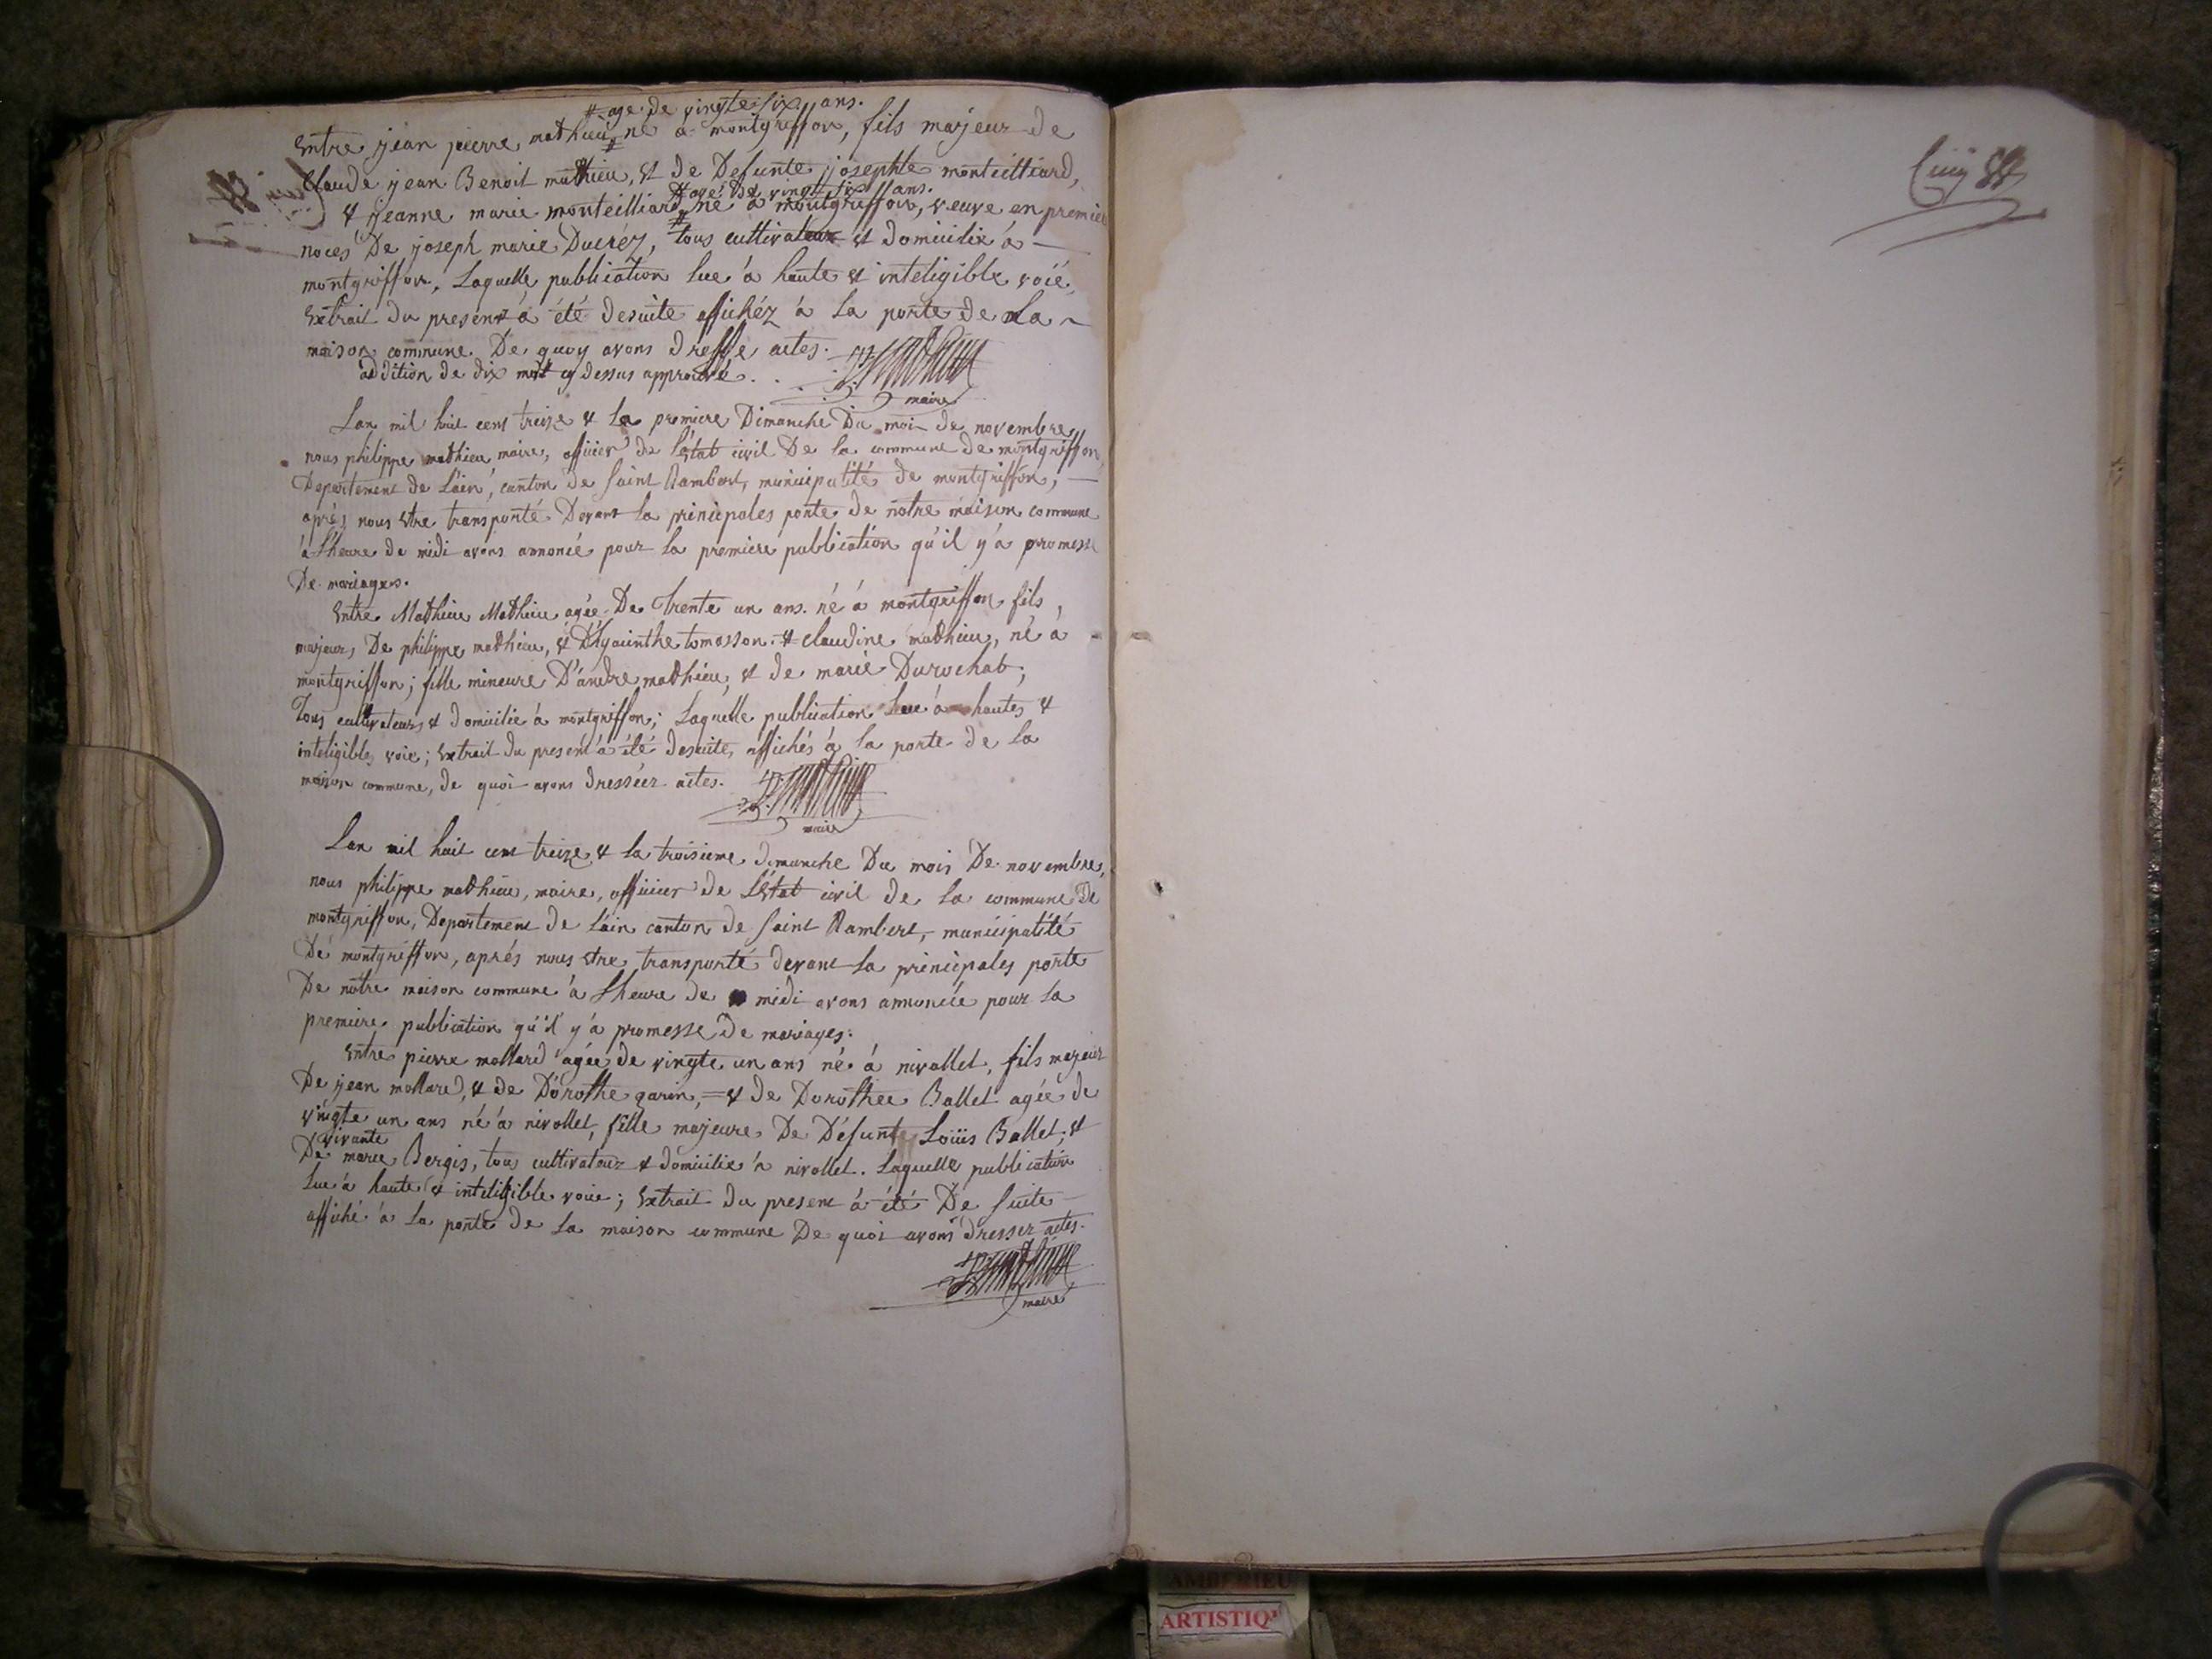 # age de vingte six ans.
entre jean pierre mathieu # né à montgriffon, fils majeur de
Claude jean Benoit mathieu, et de Defunte josephte monteilliard,
# agé De vingt six ans.
& jeanne marie monteilliard # né à montgriffon, veuve en premier
noces De joseph marie Ducréz, tous cultivateur et domicilié à
montgriffon, Laquelle publication lue à haute et inteligible voié,
extrait du present à été desuite affichéz à la porte de La
maison commune. De quoy avons dressé actes.
addition de dix mot cy dessus approuvé. P. Mathieu
maire
Lan mil huit cent treize & la premiere Dimanche Du moi de novembre
nous philippe mathieu maire, officier de l'état civil De la commune de montgriffon,
Departement de L'ain, canton de Saint Rambert, municipalité de montgriffon,
aprés nous etre transporté Devant la principales porte de notre maison commune
à lheure de midi avons annoncé pour la premiere publication qu'il y'à promesse
De mariages.
entre Mathieu Mathieu agée De Trente un ans. né à montgriffon fils,
majeurs De philippe mathieu, & D'hyacinthe tomasson. & claudine mathieu, né à
montgriffon; fille mineure D'andre mathieu, et de marie Durochat;
Tous cultivateurs & domicilié à montgriffon; Laquelle publication Lue à hautes &
inteligibles voie; extrait du present à été desuite affichés à la porte de la
maison commune, de quoi avons dresséez actes. P. Mathieu
maire
Lan mil huit cent treize & la troisieme dimanche Du mois De novembre,
nous philippe mathieu, maire, officier de L'état civil de la commune De
montgriffon, Departement de L'ain canton de Saint Rambert, municipalité
De montgriffon, aprés nous etre transporté devant la principales porte
De nôtre maison commune à lheure de midi avons annoncée pour la
premiere publication qu'il y'à promesse De mariages.
entre pierre mollard agée de vingte un ans né à nivollet, fils majeur
De jean mollard, & de Dorothe garin, = & de Dorothee Ballet agée de
vingte un ans né à nivollet, fille majeure De Défunte Loüis Ballet, &
vivante
De marie Bergis, tous cultivateur & domicilié à nivollet. Laquelle publication
Lue à haute & inteligible voie; extrait du present à été De suite
affiché à la porte de la maison commune De quoi avons dresser actes.
P. Mathieu
maire
AMBERIEU
ARTISTIQ